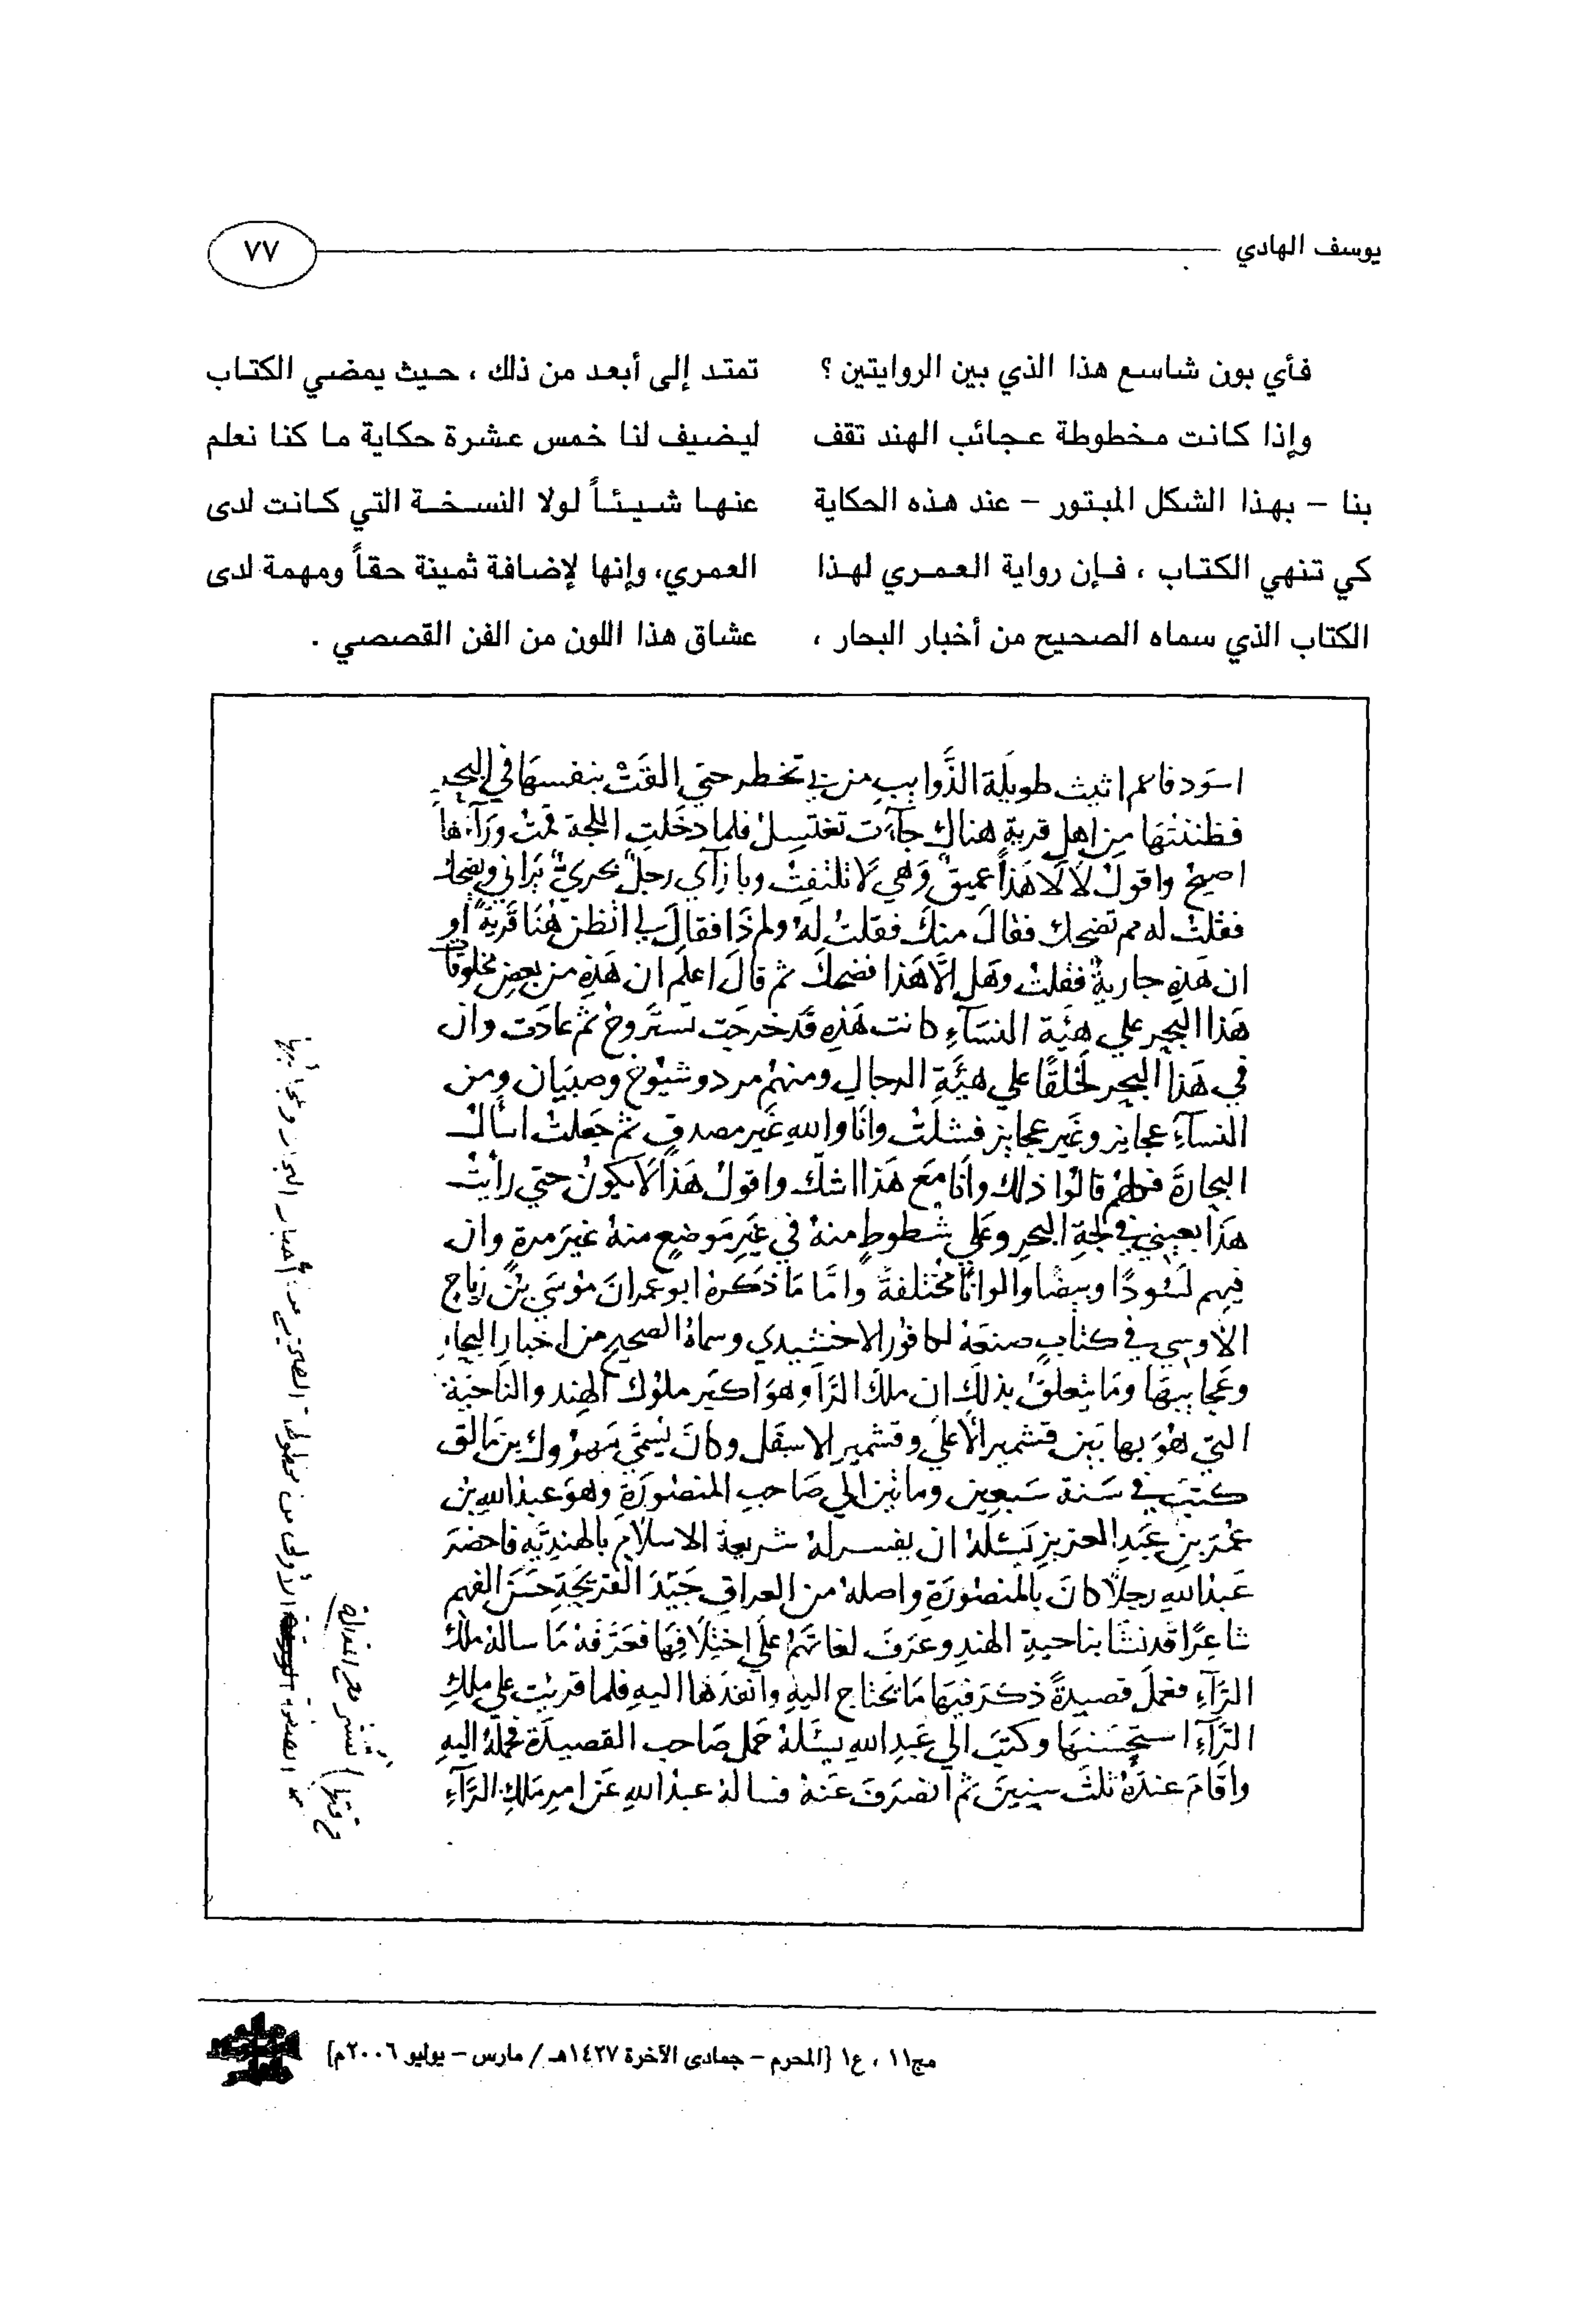 يوسف الهادي
٧٧
فأي بون شاسع هذا الذي بين الروايتين ؟
وإذا كانت مخطوطة عجائب الهند تقف
بنا – بهذا الشكل المبتور – عند هذه الحكاية
كي تنهي الكتاب ، فإن رواية العمري لهذا
الكتاب الذي سماه الصحيح من أخبار البحار ،
تمتد إلى أبعد من ذلك ، حيث يمضي الكتاب
ليضيف لنا خمس عشرة حكاية ما كنا نعلم
عنها شيئاً لولا النسخة التي كانت لدى
العمري، وإنها لإضافة ثمينة حقاً ومهمة لدى
عشاق هذا اللون من الفن القصصي .
اسود فاعم اثيث طويلة الذوايب من تخطر حتى القت بنفسها في البحر
فظننتها من اهل قرية هناك جاءت تغتسل فلما دخلت اللجة قمت وراءها
اصيح واقول لا لا لا هذا عميق وهي لا تلتفت وبازآي رجل بحري يراني ويضحك
فقلت له مم تضحك فقال منك فقلت له ولم ذا فقال لي اتظن هنا قرية او
ان هذه جارية فقلت وهل الا هذا فضحك ثم قال اعلم ان هذه من بعض مخلوقات
هذا البحر علي هيئة النسآء كانت هذه قد خرجت تستروح ثم عادت وان
في هذا البحر لخلقًا علي هيئة الرجال ومنهم مرد وشيوخ وصبيان ومن
النسآء عجايز وغير عجايز فسئلت وانا والله غير مصدق ثم جعلت اسأل
البحارة فكلهم قالوا ذلك وانا مع هذا اشك واقول هذا لا يكون حتي رأيت
هذا بعيني في لجة البحر وعلي شطوط منه في غير موضع منه غير مرة وان
فيهم لسودًا وبيضا والوانًا مختلفة وامّا مَا ذكره ابو عمران موسي بن رباح
الاوسي في كتاب صنعه لكافور الاخشيدي وسماه الصحيح من اخبار البحار
وعجايبها وما يتعلق بذلك ان ملك الرّا وهو اكبر ملوك الهند والناحية
التي هو بها بين قشمير الأعلي وقشمير الاسفل وكان يسمّي مهروك بن رالق
كتب في سنة سبعين وماتين الي صاحب المنصورة وهو عبد الله بن
عمر بن عبد العزيز يسئله ان يفسر له شريعة الاسلام بالهنديّه فاحضر
عبد الله رجلًا كان بالمنصورة واصله من العراق جيّد القريحة حسن الفهم
شاعرًا قد نشا بناحية الهند وعرف لغاتهم علي اختلافها فعرّفه ما ساله ملك
الرّآء فعمل قصيدةً ذكر فيها ما يحتاج اليه وانفذها اليه فلما قريت علي ملك
الرّآء استحسنها وكتب الي عبد الله يسئله حمل صاحب القصيدة فحمله اليه
واقام عنده ثلث سنين ثم انصرف عنه فساله عبد الله عن امر ملك الرّآء
الأولى من مخطوطة الصحيح من أخبار البحار وعجائبها
مج١١ ، ع١ {المحرم – جمادى الآخرة ١٤٢٧هـ / مارس – يوليو ٢٠٠٦م}